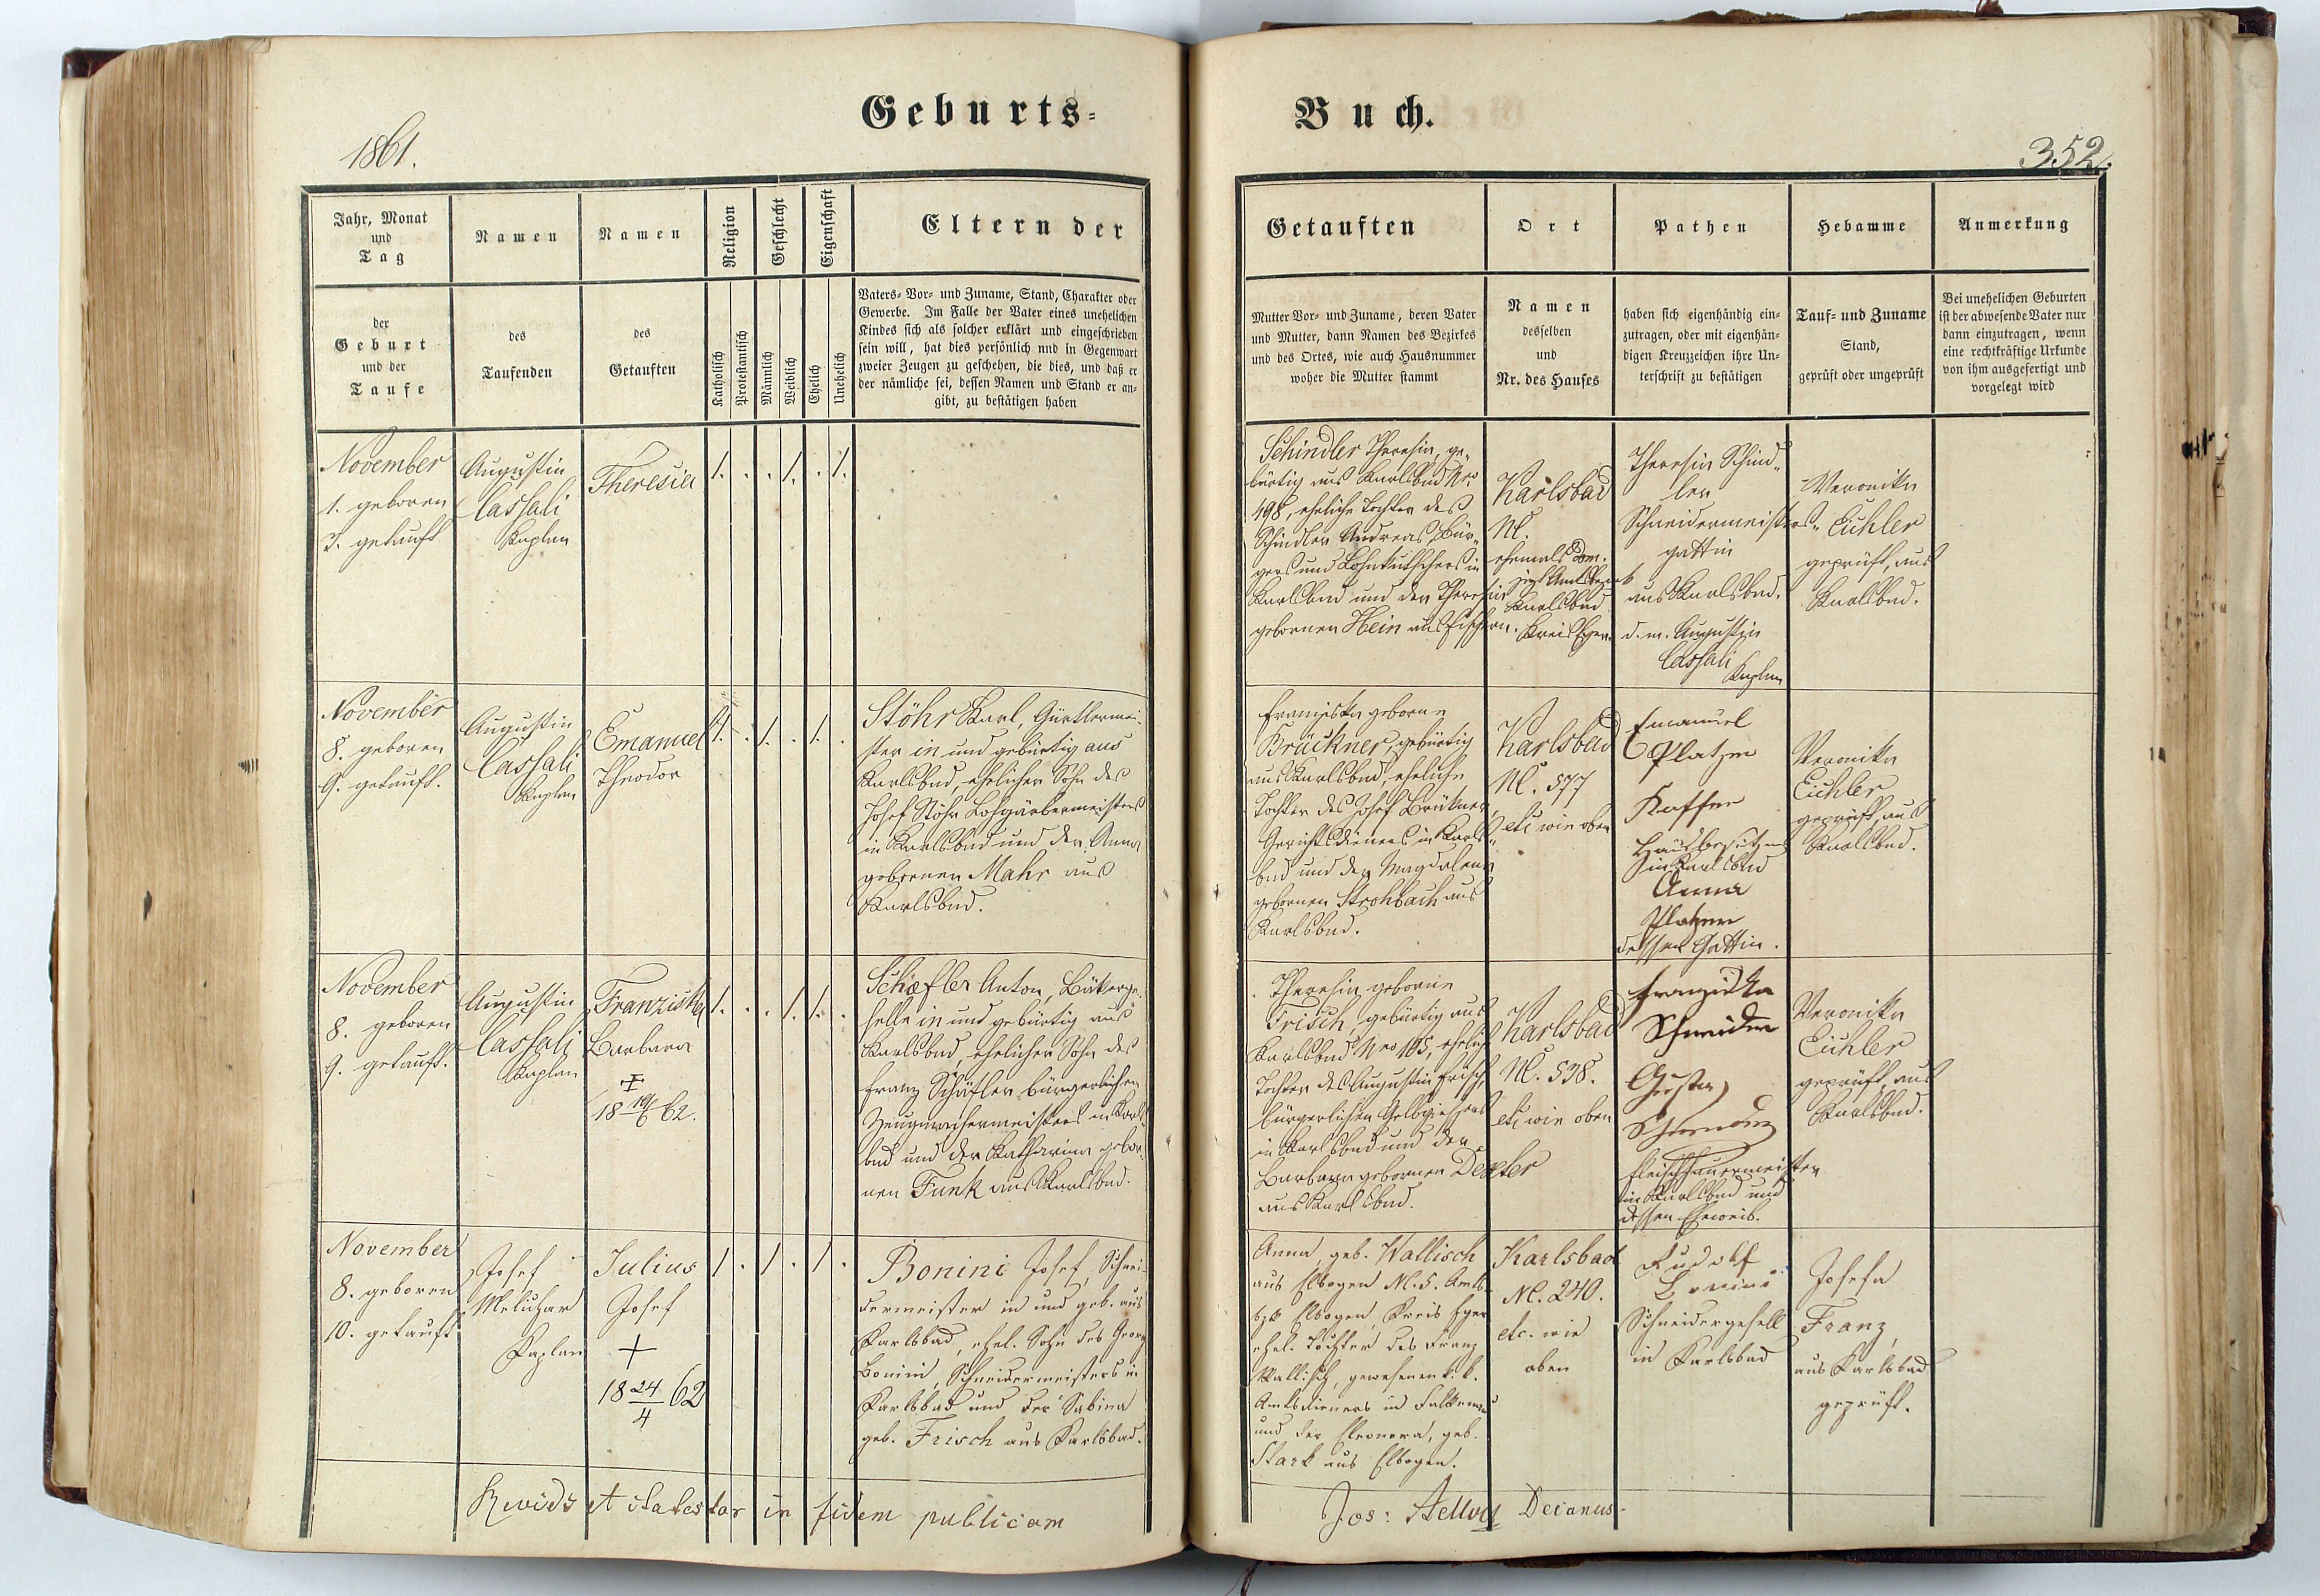 Geburts-
Buch.
1861.
352.
Jahr, Monat
und
Tag
Namen
Namen
Religion
Geschlecht
Eigenschaft
Eltern der
Getauften
Ort
Pathen
Hebamme
Anmerkung
der
Geburt
und der
Taufe
des
Taufenden
des
Getauften
Katholisch
Protestantisch
Männlich
Weiblich
Ehelich
Unehelich
Vaters- Vor- und Zuname, Stand, Charakter oder
Gewerbe. Im Falle der Vater eines unehelichen
Kindes sich als solcher erklärt und eingeschrieben
sein will, hat dies persönlich nnd in Gegenwart
zweier Zeugen zu geschehen, die dies, und daß er
der nämliche sei, dessen Namen und Stand er an-
gibt, zu bestätigen haben
Mutter Vor- und Zuname, deren Vater
und Mutter, dann Namen des Bezirkes
und des Ortes, wie auch Hausnummer
woher die Mutter stammt
Namen
desselben
und
Nr. des Hauses
haben sich eigenhändig ein-
zutragen, oder mit eigenhän-
digen Kreuzzeichen ihre Un-
terschrift zu bestätigen
Tauf- und Zuname
Stand,
geprüft oder ungeprüft
Bei unehelichen Geburten
ist der abwesende Vater nur
dann einzutragen, wenn
eine rechtkräftige Urkunde
von ihm ausgefertigt und
vorgelegt wird
November
1. geboren
3. getauft
Augustin
Cassali
Kaplan
Theresia
1. . . 1. . 1.
Schindler Theresia, ge-
bürtig aus Karlsbad Nro
498, eheliche Tochter des
Schindler Andreas, Bür-
gers und Lohnkutschers in
Karlsbad und der Theresia
gebornen Hein aus Fischern.
Karlsbad
N.
ehemals Dom.
jetzt Amtsbezirk
Karlsbad
Kreis Eger.
Theresia Schind-
ler
Schneidermeisters-
gattin
aus Karlsbad.
d. m. Augustin
Cassali
Kaplan
Veronika
Eichler
geprüft, aus
Karlsbad.
November
8. geboren
9. getauft.
Augustin
Cassali
Kaplan
Emanuel
Theodor
1. . 1. . 1. .
Stöhr Karl, Gürtlermei-
ster in und gebürtig aus
Karlsbad, ehelicher Sohn des
Josef Stöhr Lohgärbermeisters
in Karlsbad und der Anna
gebornen Mahr aus
Karlsbad.
Franziska geborne
Brückner, gebürtig
aus Karlsbad, eheliche
Tochter des Josef Brükner,
Gerichtsdieners in Karls-
bad und der Magdalena
gebornen Strohbach aus
Karlsbad.
Karlsbad
N. 577
etc wie oben
Emanuel
Platzer
Kaffee
Hausbesitzer
in Karlsbad
Anna
Platzer
dessen Gattin.
Veronika
Eichler
geprüft, aus
Karlsbad.
November
8. geboren
9. getauft.
Augustin
Cassali
Kaplan
Franziska
Barbara
18 62.
1. . . 1. 1. .
Schæfler Anton, Bäkerge-
selle in und gebürtig aus
Karlsbad, ehelicher Sohn des
Franz Schäfler, bürgerlichen
Zeugmachermeisters in Karls-
bad und der Katharina gebor-
nen Funk aus Karlsbad.
Theresia geborne
Frisch, gebürtig aus
Karlsbad Nro 165, eheliche
Tochter des Augustin Frisch,
bürgerlichen Gelbgiessers
in Karlsbad und der
Barbara gebornen Dexler
aus Karlsbad.
Karlsbad
N. 538.
etc wie oben
Franziska
Schneider
Gustav
Fleischhauermeister
in Karlsbad und
dessen Eheweib.
Veronika
Eichler
geprüft, aus
Karlsbad.
November
8. geboren
10. getauft
Josef
Melichar
Kaplan
Julius
Josef
+
18 24/4 62
1 . 1 . 1 .
Bonini Josef, Schnei-
dermeister in und geb. aus
Karlsbad, ehel. Sohn des Georg
Bonini, Schneidermeisters in
Karlsbad und der Sabina
geb. Frisch aus Karlsbad.
Anna, geb. Wallisch
aus Elbogen N. 5. Amts-
bzk Elbogen Kreis Eger
ehel. Tochter des Franz
Wallisch, gewesenen k. k.
Amtsdieners in Falkenau
und der Eleonora, geb.
Stark aus Elbogen.
Karlsbad
N. 240.
etc. wie
oben
Rudolf
Bonini
Schneidergesell
in Karlsbad
Josefa
Franz,
aus Karlsbad
geprüft.
in fidem publicam
Jos: Decanus.